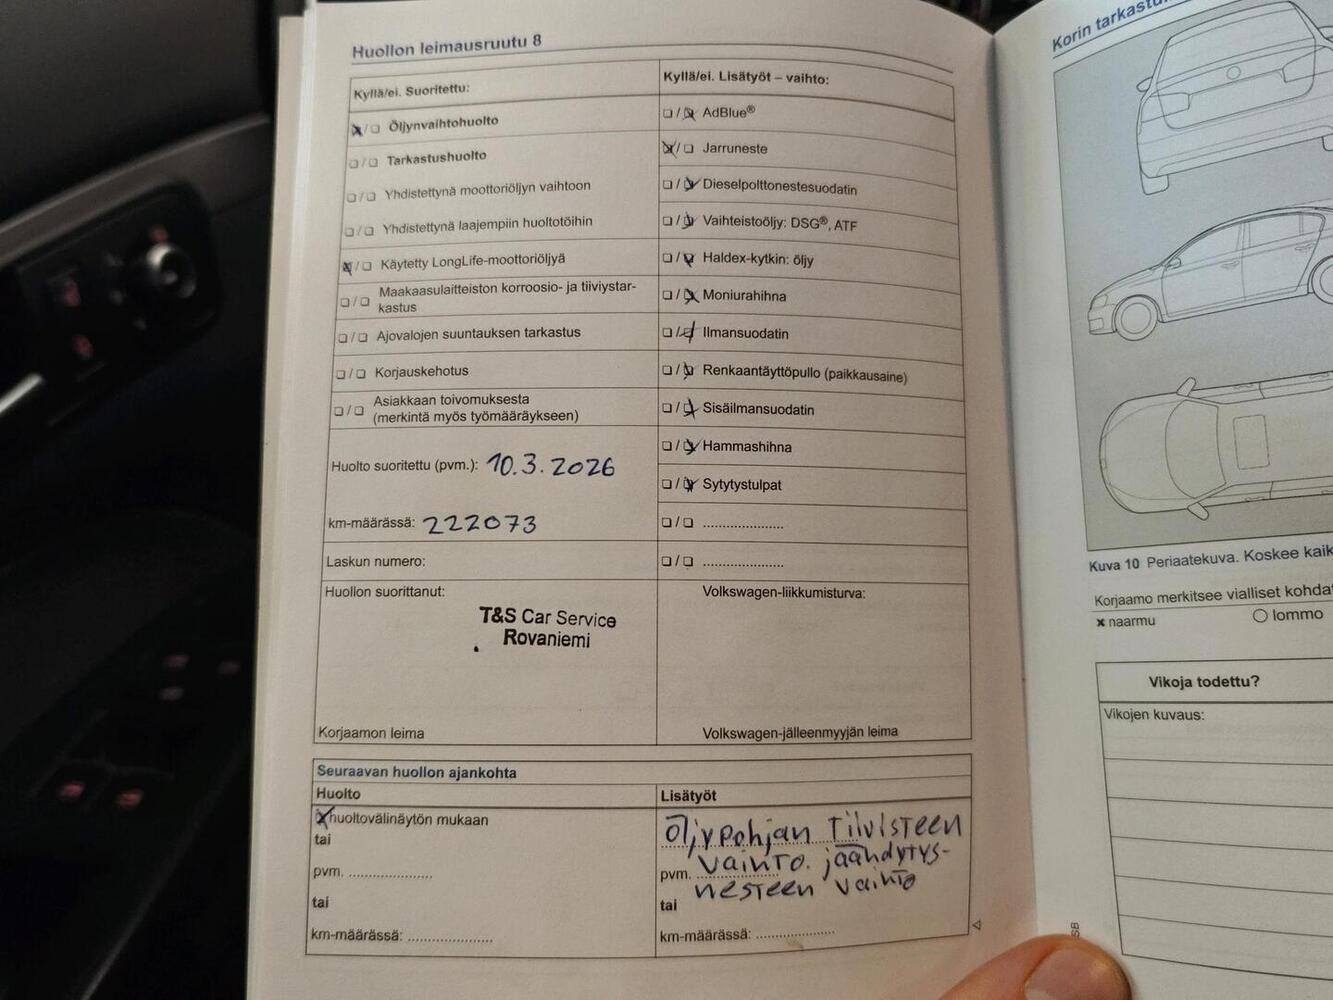 Huollon leimausruutu 8
Kyllä/ei. Suoritettu:
Öljynvaihtohuolto
Tarkastushuolto
Yhdistettynä moottoriöljyn vaihtoon
Yhdistettynä laajempiin huoltotöihin
Käytetty LongLife-moottoriöljyä
Maakaasulaitteiston korroosio- ja tiiviystar-
kastus
Ajovalojen suuntauksen tarkastus
Korjauskehotus
Asiakkaan toivomuksesta
(merkintä myös työmääräykseen)
Huolto suoritettu (pvm.): 10.3.2026
km-määrässä: 222073
Laskun numero:
Huollon suorittanut:
T&S Car Service
Rovaniemi
Korjaamon leima
Kyllä/ei. Lisätyöt – vaihto:
AdBlue®
Jarruneste
Dieselpolttonestesuodatin
Vaihteistoöljy: DSG®, ATF
Haldex-kytkin: öljy
Moniurahihna
Ilmansuodatin
Renkaantäyttöpullo (paikkausaine)
Sisäilmansuodatin
Hammashihna
Sytytystulpat
Volkswagen-liikkumisturva:
Volkswagen-jälleenmyyjän leima
Seuraavan huollon ajankohta
Huolto
huoltovälinäytön mukaan
tai
pvm.
tai
km-määrässä:
Lisätyöt
öljypohjan tiivisteen
vaihto. jäähdytys-
pvm.
nesteen vaihto
tai
km-määrässä:
Korin
Kuva 10 Periaatekuva. Koskee
Korjaamo merkitsee vialliset
x naarmu
lommo
Vikoja todettu?
Vikojen kuvaus: